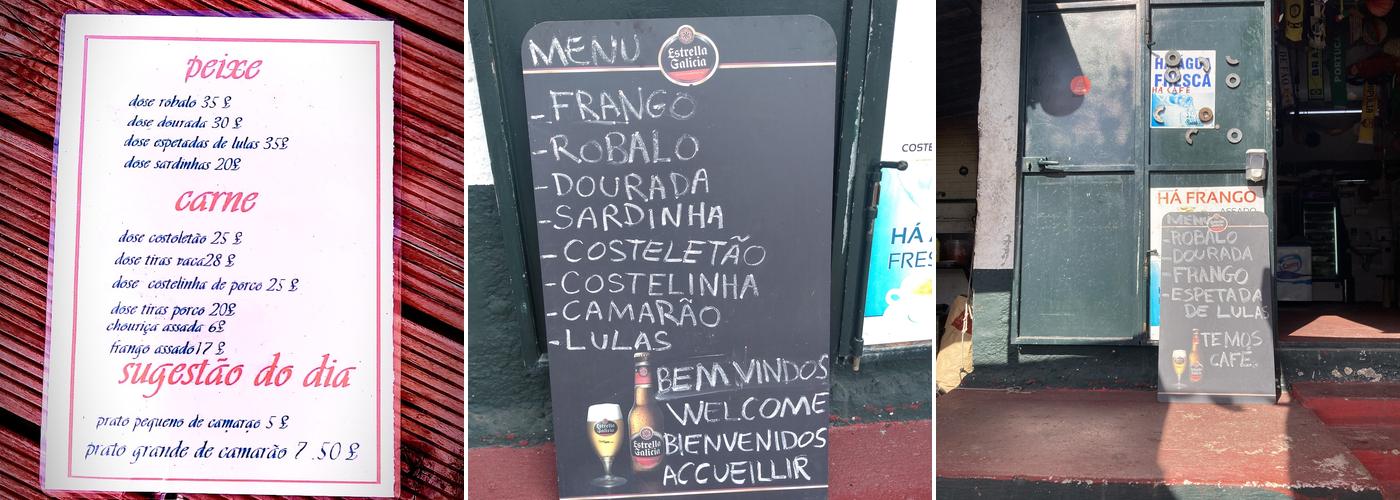 peixe
dose robalo 35 £
dose dourada 30 £
dose espetadas de lulas 35£
dose sardinhas 20£
carne
dose costoletão 25 £
dose tiras vaca28 £
dose costelinha de porco 25 £
dose tiras porco 20£
chouriça assada 6£
frango assado17 £
sugestão do dia
prato pequeno de camarao 5 £
prato grande de camarão 7.50 £
MENU
Estrella
Galicia
-FRANGO
-ROBALO
-DOURADA
-SARDINHA
-COSTELETÃO
-COSTELINHA
-CAMARÃO
-LULAS
BEM VINDOS
WELCOME
BIENVENIDOS
ACCUEILLIR
Estrella
Galicia
Estrella
Galicia
COSTE
HÁ
FRES
HÁ AGUA
FRESCA
HA CAFÉ
HÁ FRANGO
ASSADO
MENU
-ROBALO
-DOURADA
-FRANGO
-ESPETADA
DE LULAS
TEMOS
CAFÉ.
PORTUG